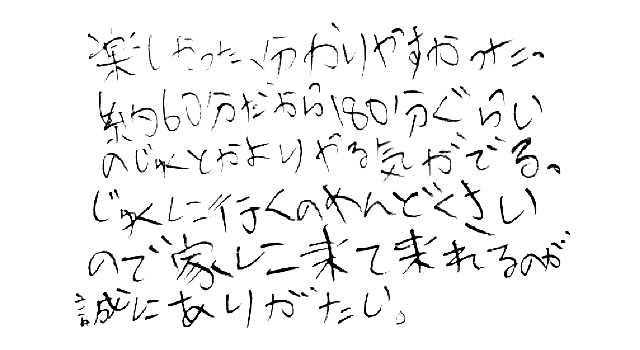 楽しかった、分かりやすかった。
約60分だから180分ぐらい
のじゅくとかよりやる気がでる。
じゅくに行くのめんどくさい
ので家に来て来れるのが
誠にありがたい。